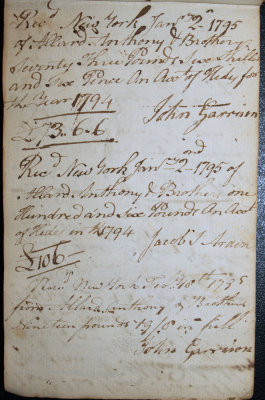 Recd New York Janry 2nd 1795
of Allard Anthony & Brother
Seventy Three Pounds Six Shillings
and Six Pence An Acct of Hides for
the Year 1794
John Garrison
£73.6.6
Recd New York Janry 2nd 1795 of
Allard Anthony & Brother one
Hundred and Six Pounds An Acct
of Hides in 1794
Jacob Arden
£106
New York 18th 1795
from Allard anthony & Brother
Nineteen pounds 19/8 in full
John Garrison